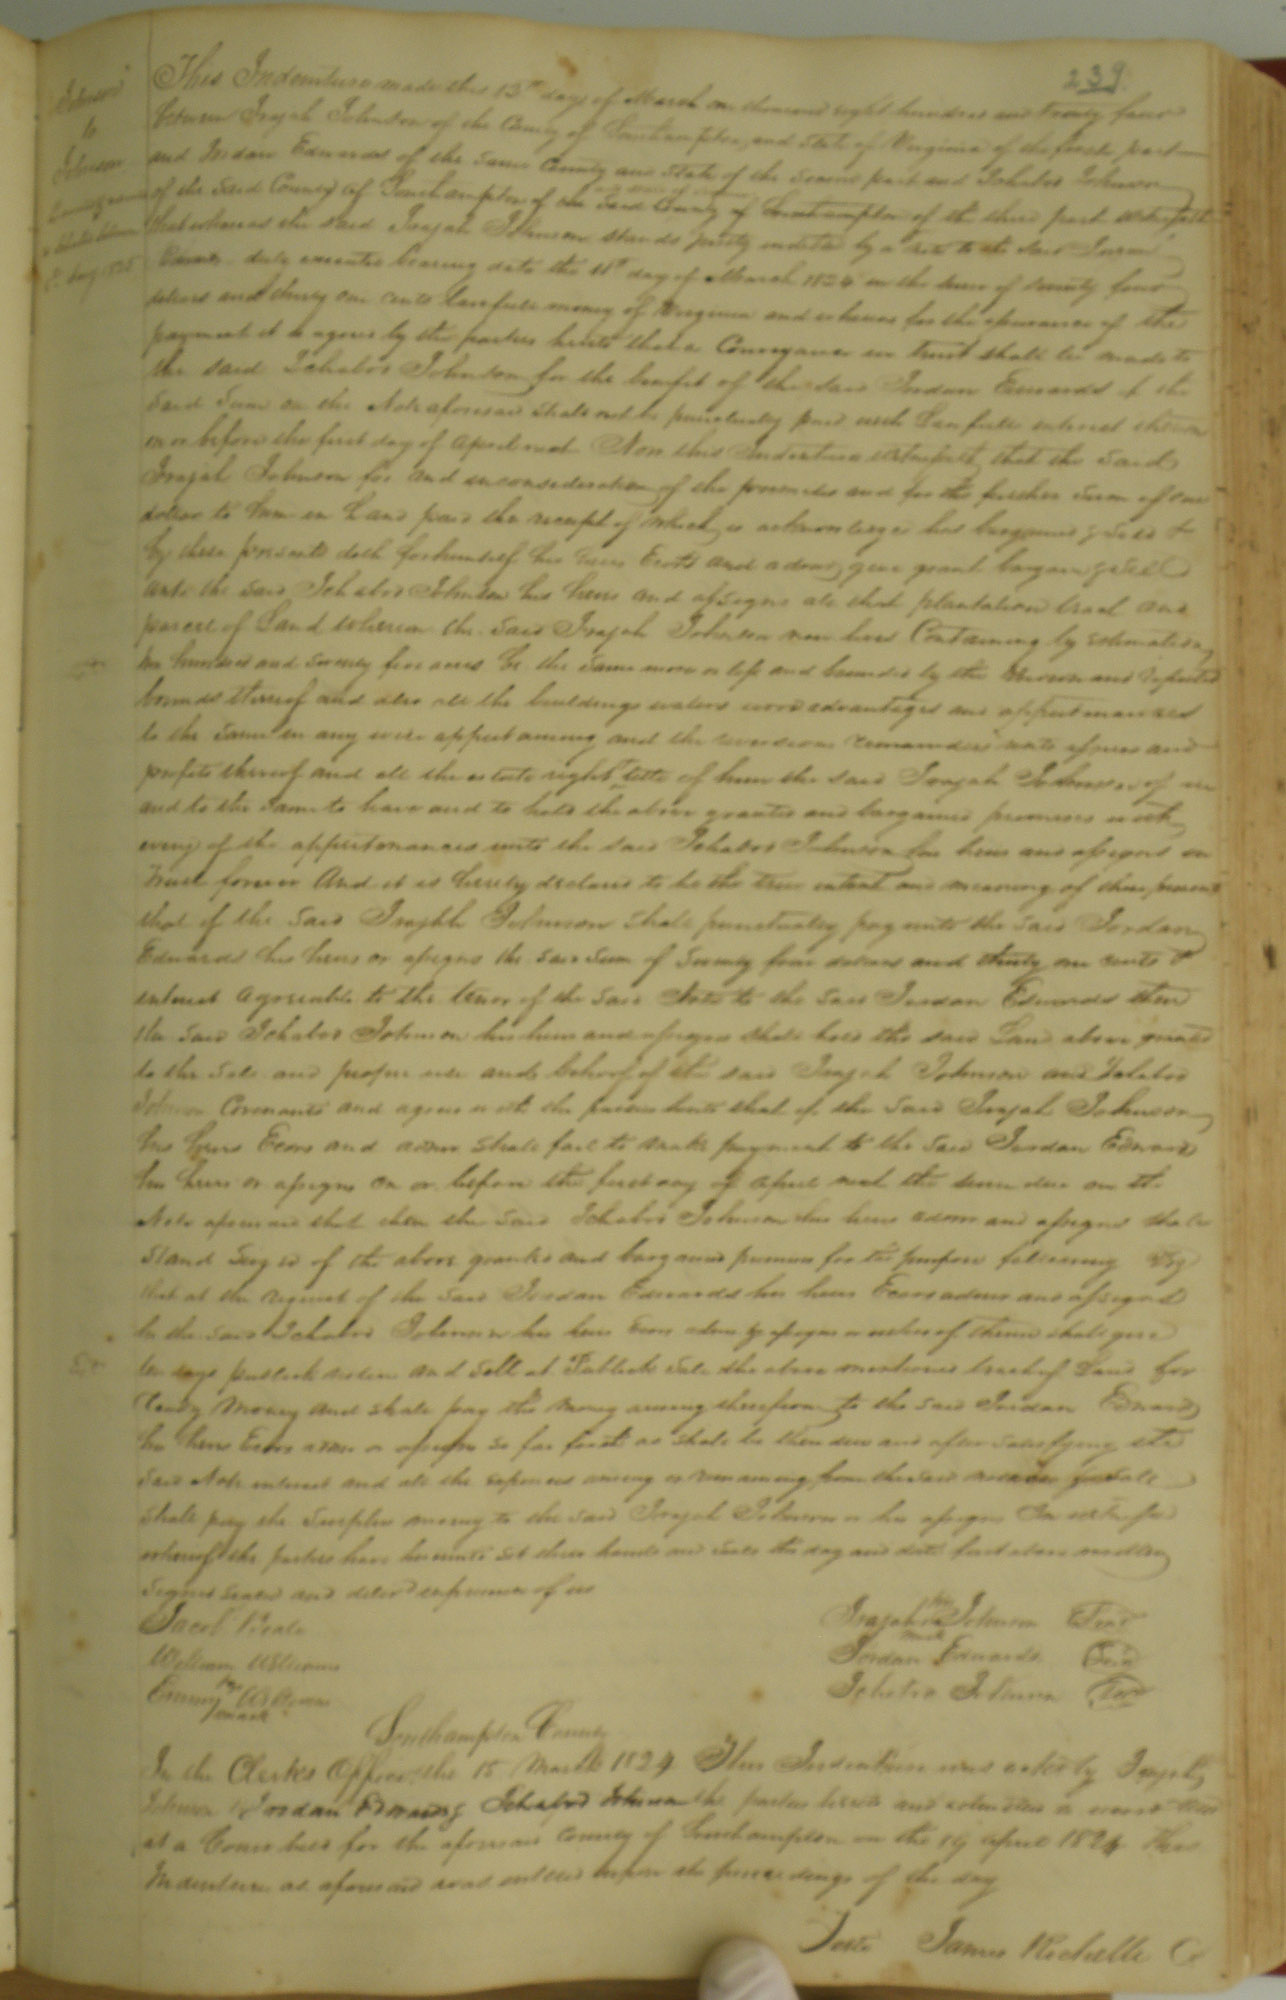 239
Johnson
to
Johnson
This Indenture made this 13th day of March one thousand eight hundred and twenty four
between Irajah Johnson of the County of Southampton and State of Virginia of the first part
and Jordan Edwards of the same County and State of the second part and Ichabod Johnson
of the said County of Southampton of the said County of Southampton of the third part witnesseth
that whereas the said Irajah Johnson stands justly indebted by a note to the said Jordan
Edwards duly executed bearing date the 11th day of March 1824 in the sum of seventy four
dollars and thirty one cents lawfull money of Virginia and whereas for the assurance of the
payment it is agreed by the parties hereto that a Conveyance in trust shall be made to
the said Ichabod Johnson for the benefit of the said Jordan Edwards if the
said sum on the Note aforesaid shall not be punctually paid with lawfull interest thereon
on or before the first day of April next Now this Indenture witnesseth that the said
Irajah Johnson for and in consideration of the premises and for the further sum of one
dollar to him in hand paid the receipt of which is acknowledged has bargained & sold &
by these presents doth for himself his heirs Exors and admrs give grant bargain & sell
unto the said Ichabod Johnson his heirs and assigns all that plantation tract and
parcel of Land whereon the said Irajah Johnson now lives Containing by estimation
hundred and twenty five acres be the same more or less and bounded by the known and reputed
bounds thereof and also all the buildings waters woods advantages and appurtenances
to the same in any wise appertaining and the reversions remainders rents issues and
profits thereof and all the estate right title of him the said Irajah Johnson of in
and to the same to have and to hold the above granted and bargained premises with
every of the appurtenances unto the said Ichabod Johnson his heirs and assigns in
trust forever And it is hereby declared to be the true intent and meaning of these presents
that if the said Irajah Johnson shall punctually pay unto the said Jordan
Edwards his heirs or assigns the said sum of seventy four dollars and thirty one cents &
interest agreeable to the tenor of the said Note to the said Jordan Edwards then
the said Ichabod Johnson his heirs and assigns shall hold the said Land above granted
to the sole and proper use and behoof of the said Irajah Johnson and Ichabod
Johnson Covenants and agrees with the parties hereto that if the said Irajah Johnson
his heirs Exors and admrs shall fail to make payment to the said Jordan Edwards
his heirs or assigns on or before the first day of April next the sum due on the
Note aforesaid that then the said Ichabod Johnson his heirs admrs and assigns shall
stand seized of the above granted and bargained premises for the purpose following viz
that at the request of the said Jordan Edwards his heirs Exors admrs and assigns
to the said Ichabod Johnson his heirs Exors admrs & assigns or either of them shall give
ten days publick notice and sell at Publick sale the above mentioned tract of Land for
ready Money and shall pay the money arising therefrom to the said Jordan Edwards
his heirs Exors admrs or assigns so far forth as shall be then due and after satisfying the
said Note interest and all the expenses arising or remaining from the said notice & sale
shall pay the surplus money to the said Irajah Johnson or his assigns In witness
whereof the parties have hereunto set their hands and seals the day and date first above written
Signed sealed and delivd in presence of us
Jacob Beale
William Williams
Emmy his Williams
mark
Irajah his Johnson Seal
mark
Jordan Edwards Seal
Ichabod Johnson Seal
Southampton County
In the Clerks Office the 15 March 1824 This Indenture was acknd by Irajah
Johnson Jordan Edwards & Ichabod Johnson the parties hereto and admitted to record And
at a Court held for the aforesaid County of Southampton on the 19 April 1824 This
Indenture as aforesaid was entered upon the proceedings of the day
Teste James Rochelle C